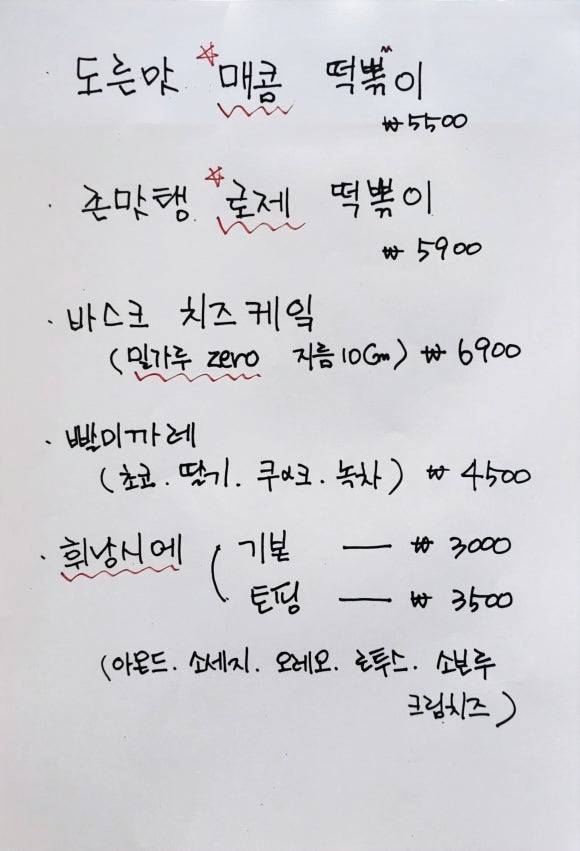 · 도른맛 ☆매콤 떡볶이
₩5500
· 존맛탱 ☆로제 떡볶이
₩5900
· 바스크 치즈케잌
(밀가루 zero 지름10Cm) ₩6900
· 빨미까레
(초코. 딸기. 쿠앤크. 녹차) ₩4500
· 휘낭시에 ( 기본 — ₩3000
토핑 — ₩3500
(아몬드. 소세지. 오레오. 로투스. 소보루
크림치즈)